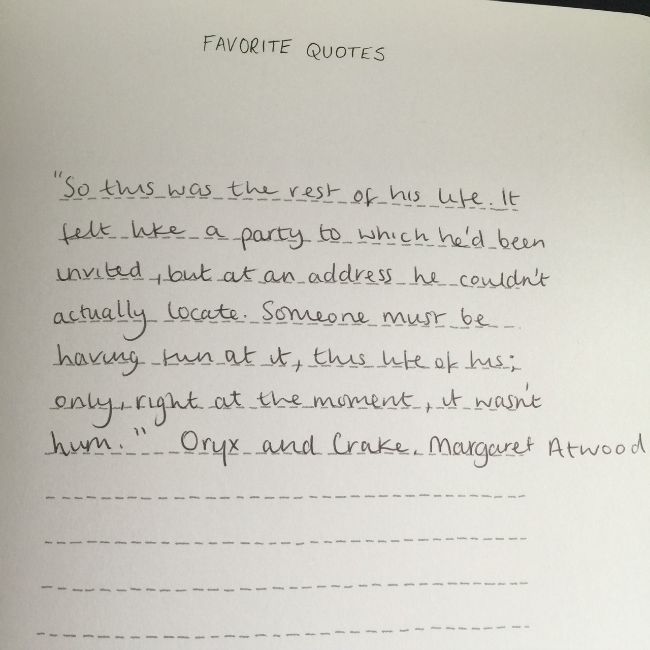 FAVORITE QUOTES
"So this was the rest of his life. It
felt like a party to which he'd been
invited, but at an address he couldn't
actually locate. Someone must be
having fun at it, this life of his;
only, right at the moment, it wasn't
him." Oryx and Crake. Margaret Atwood